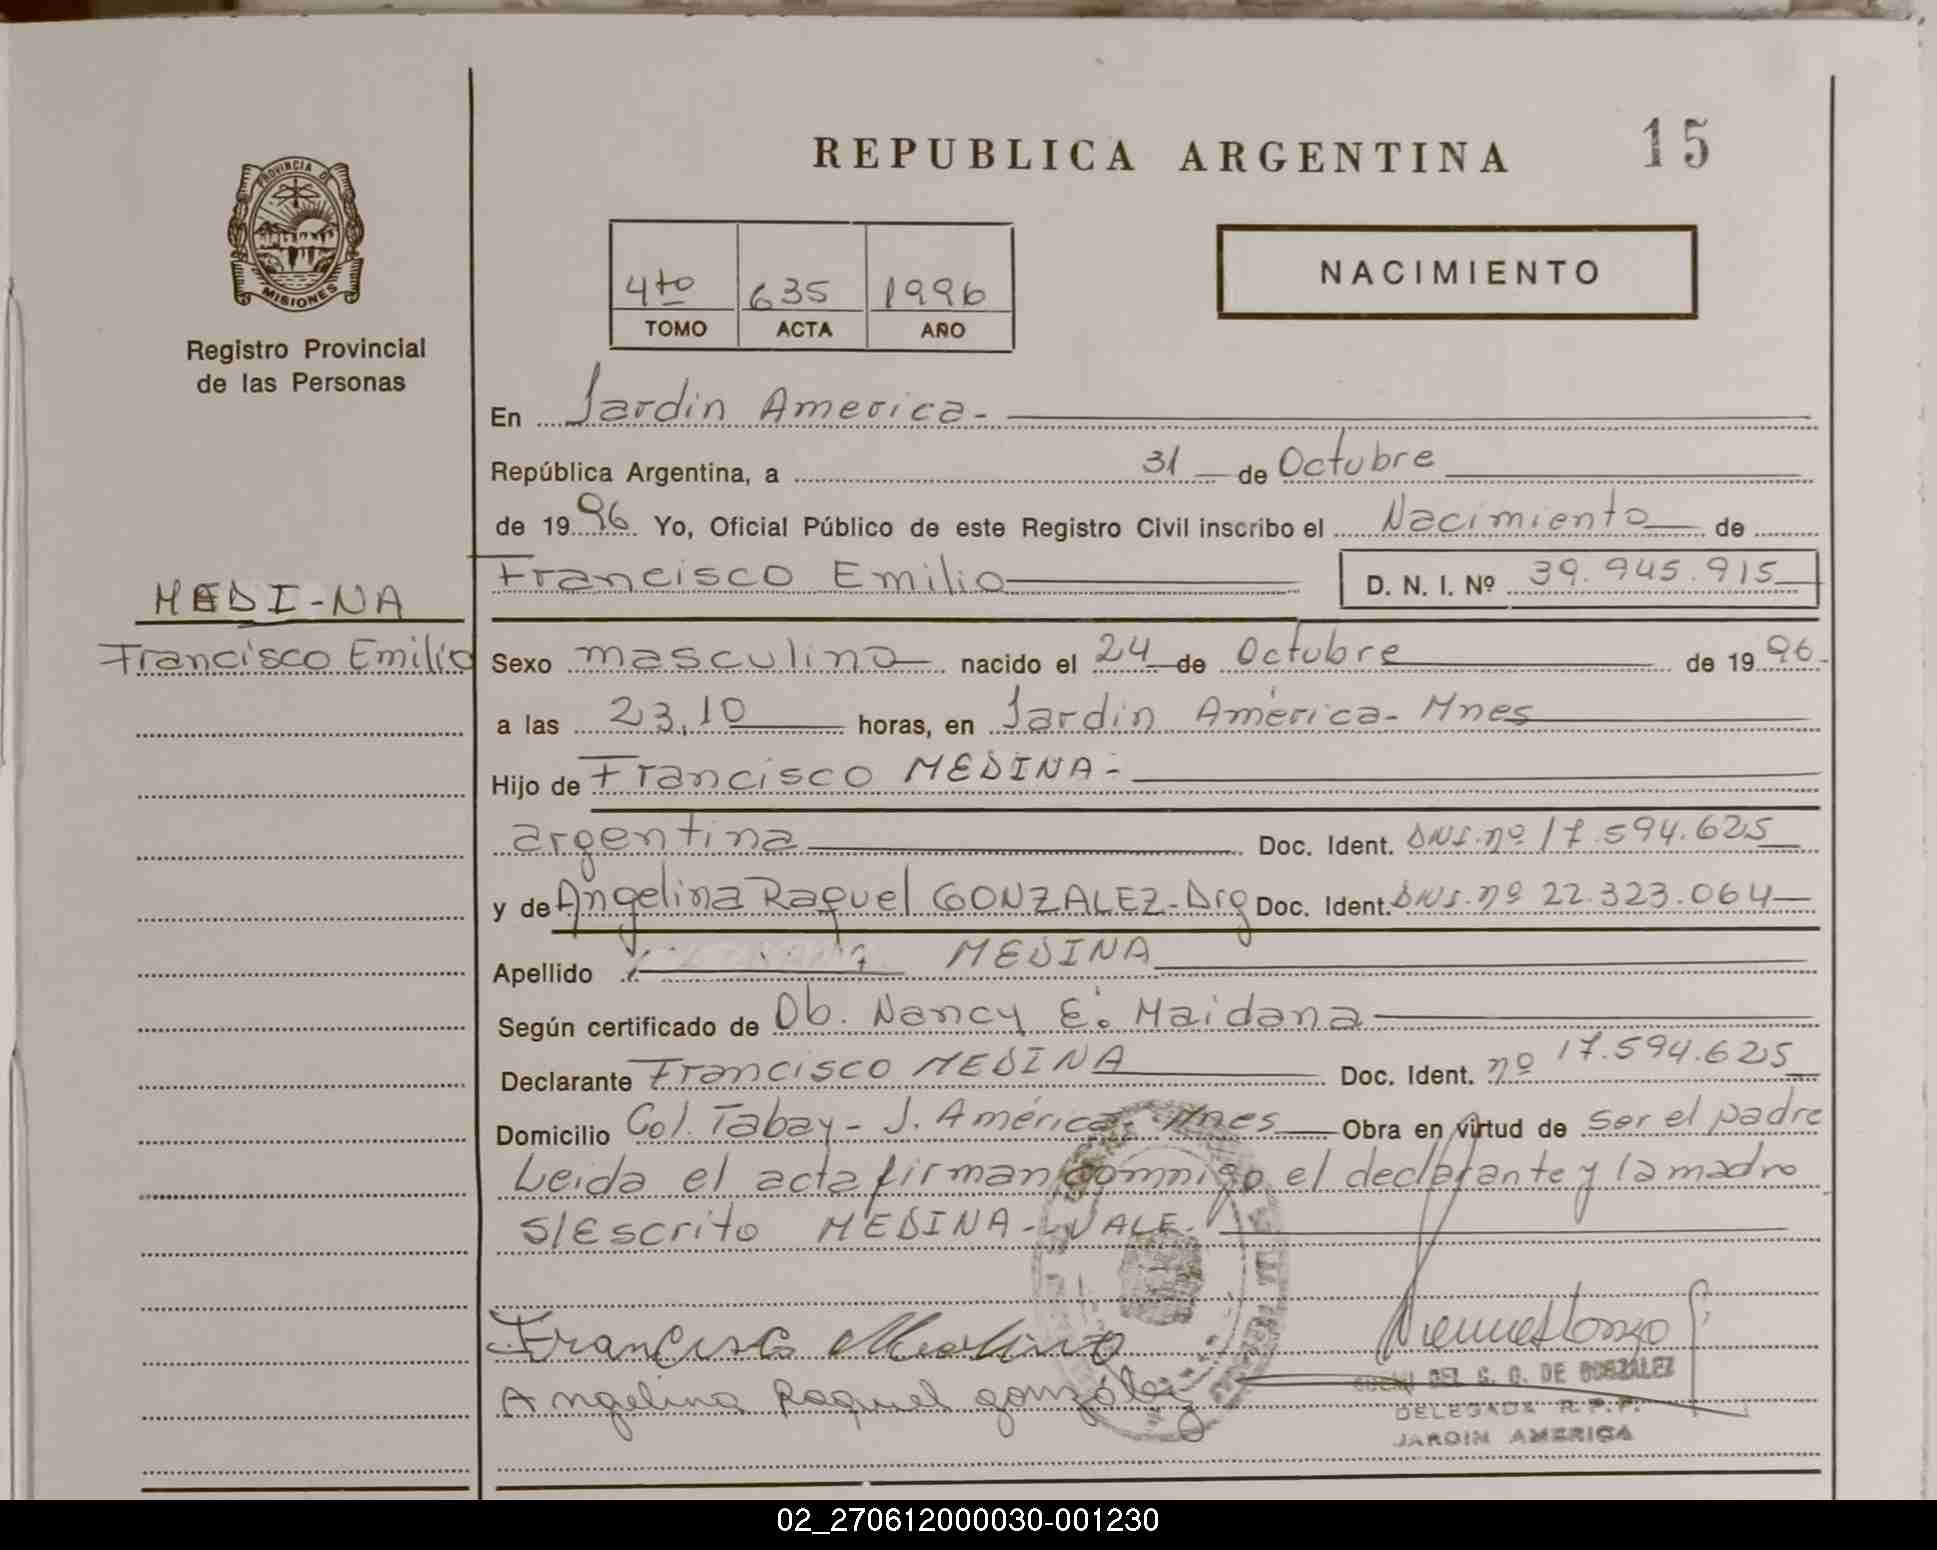 REPUBLICA ARGENTINA
15
PROVINCIA D
MISIONES
Registro Provincial
de las Personas
4to 635 1996
TOMO ACTA AÑO
NACIMIENTO
En Jardin America-
República Argentina, a 31 de Octubre
de 1996 Yo, Oficial Público de este Registro Civil inscribo el Nacimiento de
Francisco Emilio D. N. I. Nº 39.945.915
MEDI-NA
Francisco Emilio
Sexo masculino nacido el 24 de Octubre de 1996-
a las 23,10 horas, en Jardin América- Mnes
Hijo de Francisco MEDINA-
argentina Doc. Ident. DNI. nº 17.594.625
y de Angelina Raquel GONZALEZ-Arg Doc. Ident. DNI. nº 22.323.064
Apellido MEDINA
Según certificado de Ob. Nancy E. Maidana
Declarante Francisco MEDINA Doc. Ident. nº 17.594.625
Domicilio Col. Tabay- J. América- Mnes Obra en virtud de ser el padre
Leida el acta firman commigo el declarante y la madre
S/Escrito MEDINA- VALE-
Francisco Medina
Angelina Raquel gonzález
DEL S. G. DE GONZALEZ
DELEGADA R.P.P.
JARDIN AMERICA
02_270612000030-001230